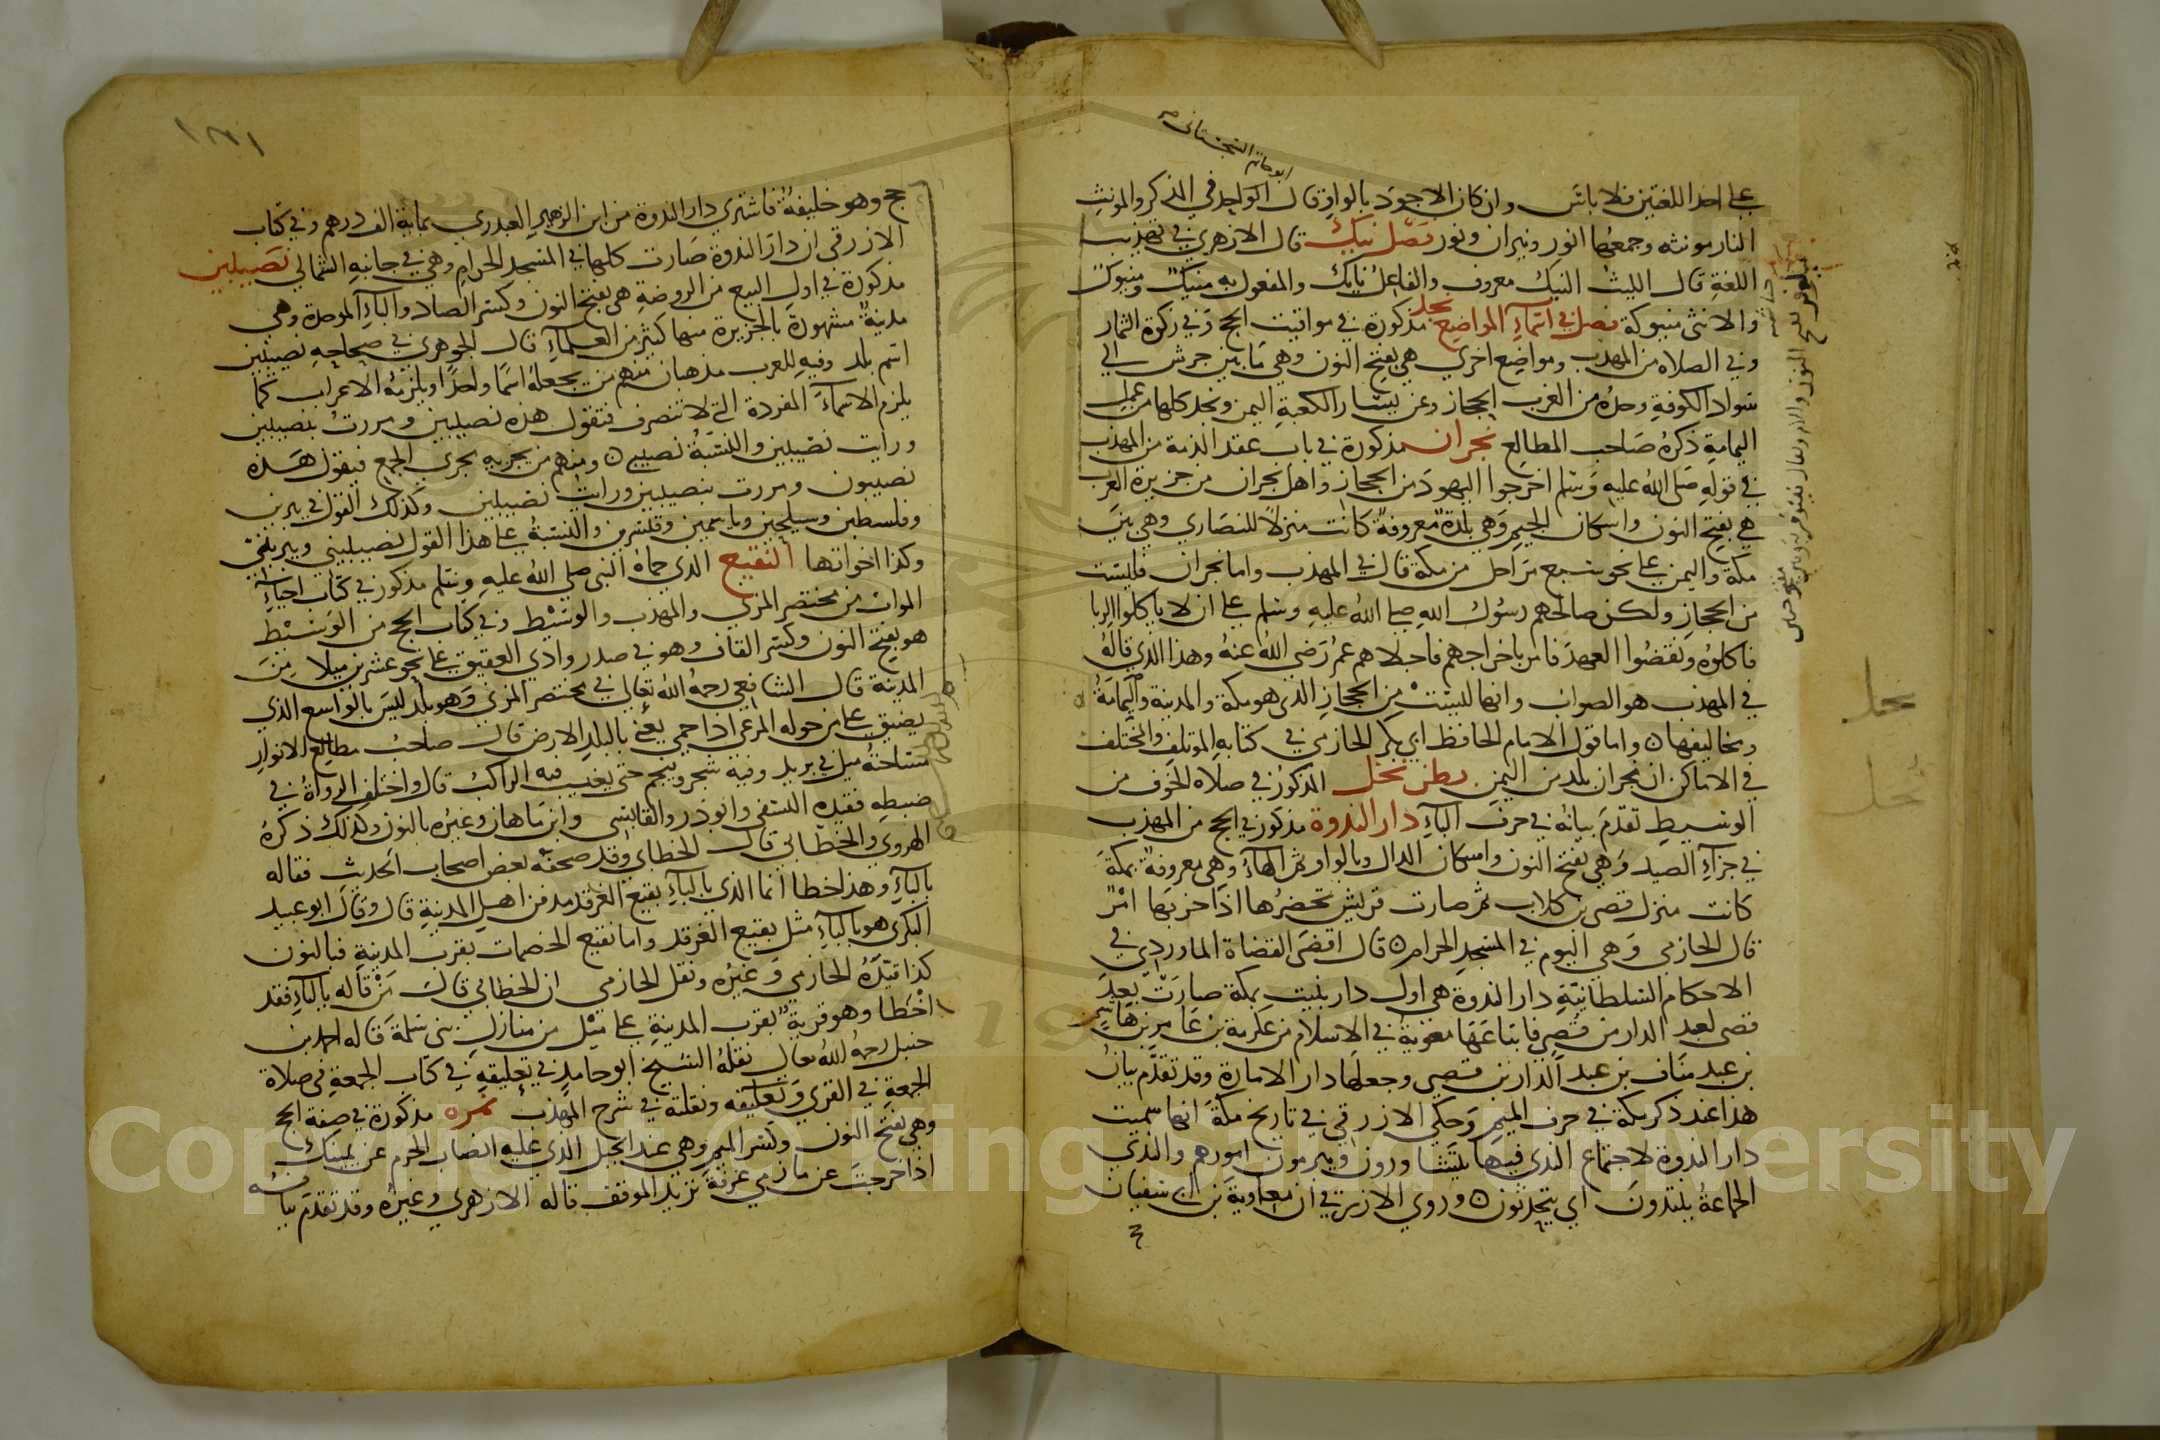 ابو حاتم السجستاني
على احد اللغتين فلا باس وان كان الاجود بالواو قال الواحدي في المذكر والمونث
النار مونثه وجمعها انور ونيران ونور فصل نيك قال الازهري في تهذيب
اللغة قال الليث النيك معروف والفاعل نايك والمفعول به منيك ومنيوك
والانثى منيوكة فصل في اسماء المواضع نجد مذكورة في مواقيت الحج وفي زكوة الثمار
وفي الصلاه من المهذب ومواضع اخرى هي بفتح النون وهي ما بين جرش الى
سواد الكوفة وحده من الغرب الحجاز وعن يسار الكعبة اليمن ونجد كلها من عمل
اليمامة ذكره صاحب المطالع نجران مذكورة في باب عقد الذمة من المهذب
في قوله صلى الله عليه وسلم اخرجوا اليهود من الحجاز واهل نجران من جزيرة العرب
هي بفتح النون واسكان الجيم وهي بلدة معروفة كانت منزلا للنصارى وهي بين
مكة واليمن على نحو سبع مراحل من مكة قال في المهذب واما نجران فليست
من الحجاز ولكن صالحهم رسول الله صلى الله عليه وسلم على ان لا ياكلوا الربا
فاكلوه ونقضوا العهد فامر باخراجهم فاجلاهم عمر رضي الله عنه وهذا الذي قاله
في المهذب هو الصواب وانها ليست من الحجاز الذي هو مكة والمدينة واليمامة
ومخاليفها واما قول الامام الحافظ ابي بكر الحازمي في كتابه الموتلف والمختلف
في الاماكن ان نجران بلد من اليمن بطن نخل المذكور في صلاة الخوف من
الوسيط تقدم بيانه في حرف الباء دار الندوة مذكور في الحج من المهذب
في جزاء الصيد وهي بفتح النون واسكان الدال وبالواو ثم الهاء وهي معروفة بمكة
كانت منزل قصي بن كلاب ثم صارت قريش تحضرها اذا حزبها امر
قال الحازمي وهي اليوم في المسجد الحرام قال اقضى القضاة الماوردي في
الاحكام السلطانية دار الندوة هي اول دار بنيت بمكة صارت بعد
قصي لعبد الدار بن قصي فابتاعها معوية في الاسلام من عكرمة بن عامر بن هاشم
بن عبد مناف بن عبد الدار بن قصي وجعلها دار الامارة وقد تقدم بيان
هذا عند ذكر مكة في حرف الميم وحكى الازرقي في تاريخ مكة انها سميت
دار الندوة لاجتماع الندي فيها يتشاورون ويبرمون امورهم والندي
الجماعة ينتدون اي يتحدثون وروى الازرقي ان معاوية بن ابي سفيان
نجد
نخل
حج وهو خليفة فاشترى دار الندوة من ابن الرهين العبدري بماية الف درهم وفي كتاب
الازرقي ان دار الندوة صارت كلها في المسجد الحرام وهي في جانبه الشمالي نصيبين
مذكورة في اول البيع من الروضة هي بفتح النون وكسر الصاد والباء الموحدة وهي
مدينة مشهورة بالجزيرة منها كثير من العلماء قال الجوهري في صحاحه نصيبين
اسم بلد وفيه للعرب مذهبان منهم من يجعله اسما واحدا ويلزمه الاعراب كما
يلزم الاسماء المفردة التي لا تنصرف فتقول هذه نصيبين ومررت بنصيبين
ورايت نصيبين والنسبة نصيبي ومنهم من يجريه مجرى الجمع فيقول هذه
نصيبون ومررت بنصيبين ورايت نصيبين وكذلك القول في يبرين
وفلسطين وسيلحين وياسمين وقنسرين والنسبة على هذا القول نصيبيني ويبريني
وكذا اخواتها النقيع الذي حماه النبي صلى الله عليه وسلم مذكور في كتاب احياء
الموات من مختصر المزني والمهذب والوسيط وفي كتاب الحج من الوسيط
هو بفتح النون وكسر القاف وهو في صدر وادي العقيق على نحو عشرين ميلا من
المدينة قال الشافعي رحمه الله تعالى في مختصر المزني وهو بلد ليس بالواسع الذي
يضيق على من حوله المرعى اذا حمي يعني بالبلد الارض قال صاحب مطالع الانوار
مساحته ميل في بريد وفيه شجر ويستجم حتى يغيب فيه الراكب قال واختلف الرواة في
ضبطه فقيده النسفي وابو ذر والقابسي وابن ماهان وغيره بالنون وكذلك ذكره
الهروي والخطابي قال الخطابي وقد صحفه بعض اصحاب الحديث فقاله
بالباء وهذا خطا انما الذي بالباء بقيع الغرقد مدفن اهل المدينة قال وقال ابو عبيد
البكري هو بالباء مثل بقيع الغرقد واما نقيع الخضمات بقرب المدينة فبالنون
كذا قيده الحازمي وغيره ونقل الحازمي ان الخطابي قال من قاله بالباء فقد
اخطا وهو قرية بقرب المدينة على ميل من منازل بني سلمة قاله احمد بن
حنبل رحمه الله تعالى نقله الشيخ ابو حامد في تعليقه في كتاب الجمعة في صلاة
الجمعة في القرى وتعليقه ونقلته في شرح المهذب نمرة مذكورة في صفة الحج
وهي بفتح النون وكسر الميم وهي عند الجبل الذي عليه انصاب الحرم عن يمينك
اذا خرجت عن مازمي عرفة تريد الموقف قاله الازهري وغيره وقد تقدم بيانه
Copyright © King Saud University